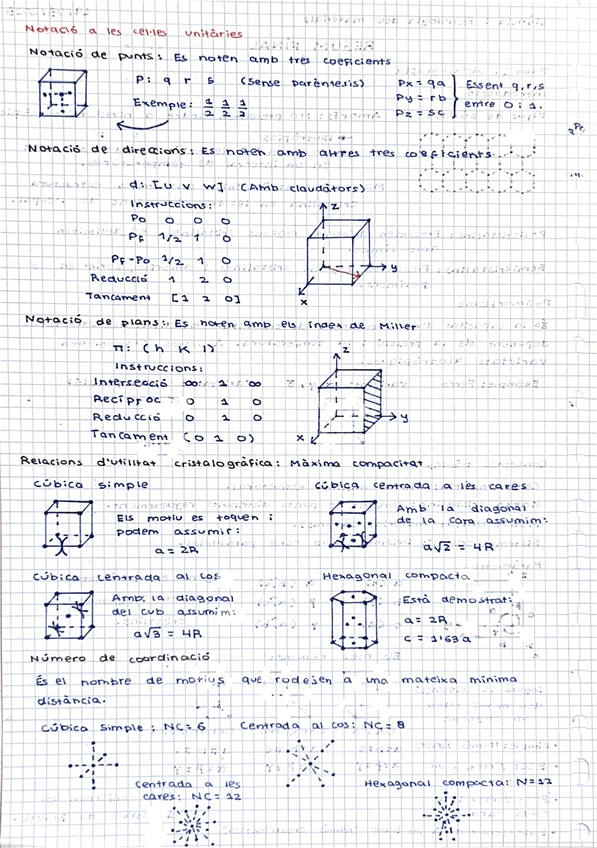 Notació a les cel·les unitàries
Notació de punts: Es noten amb tres coeficients
P: q r s (Sense parèntesis)
Exemple: 1/2 1/2 1/2
Px = qa
Py = rb
Pz = sc
Essent q,r,s
entre 0 i 1.
Notació de direccions: Es noten amb altres tres coeficients
d: [u v w] (Amb claudàtors)
Instruccions:
Po 0 0 0
PF 1/2 1 0
PF-Po 1/2 1 0
Reducció 1 2 0
Tancament [1 2 0]
z
y
x
Notació de plans: Es noten amb els índex de Miller
π: (h k l)
Instruccions:
Intersecció ∞ 1 ∞
Recíproc 0 1 0
Reducció 0 1 0
Tancament (0 1 0)
z
y
x
Relacions d'utilitat cristalogràfica: Màxima compacitat
Cúbica simple
Els motiu es toquen i
podem assumir:
a = 2R
Cúbica centrada a les cares
Amb la diagonal
de la cara assumim:
a√2 = 4R
Cúbica centrada al cos
Amb la diagonal
del cub assumim:
a√3 = 4R
Hexagonal compacta
Està demostrat:
a = 2R
c = 1'63a
Número de coordinació
És el nombre de motius que rodejen a una mateixa mínima
distància.
Cúbica simple: NC = 6
Centrada al cos: NC = 8
Centrada a les
cares: NC = 12
Hexagonal compacta: N = 12